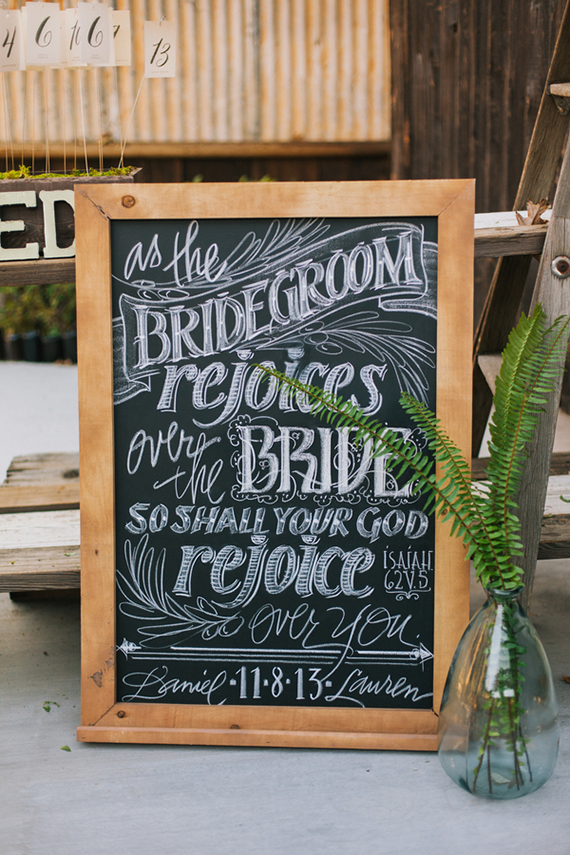 4 6 6 13
ED
as the
BRIDEGROOM
rejoices
over the BRIDE
SO SHALL YOUR GOD
rejoice
ISAIAH
62 V. 5
over you.
Daniel · 11 · 8 · 13 · Lauren